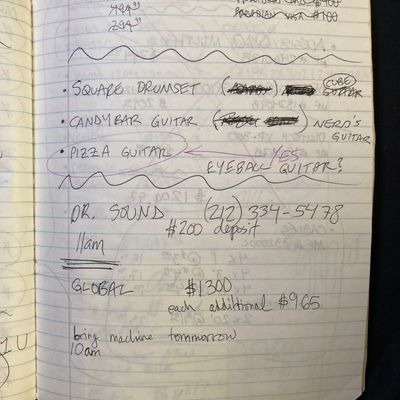 $100
• SQUARE DRUMSET ( ) CUBE GUITAR
• CANDYBAR GUITAR ( ) NERD'S GUITAR
• PIZZA GUITAR YES
EYEBALL GUITAR?
DR. SOUND (212) 334-5478
$200 deposit
11am
GLOBAL $1300
each additional $965
bring machine tommorrow
10am